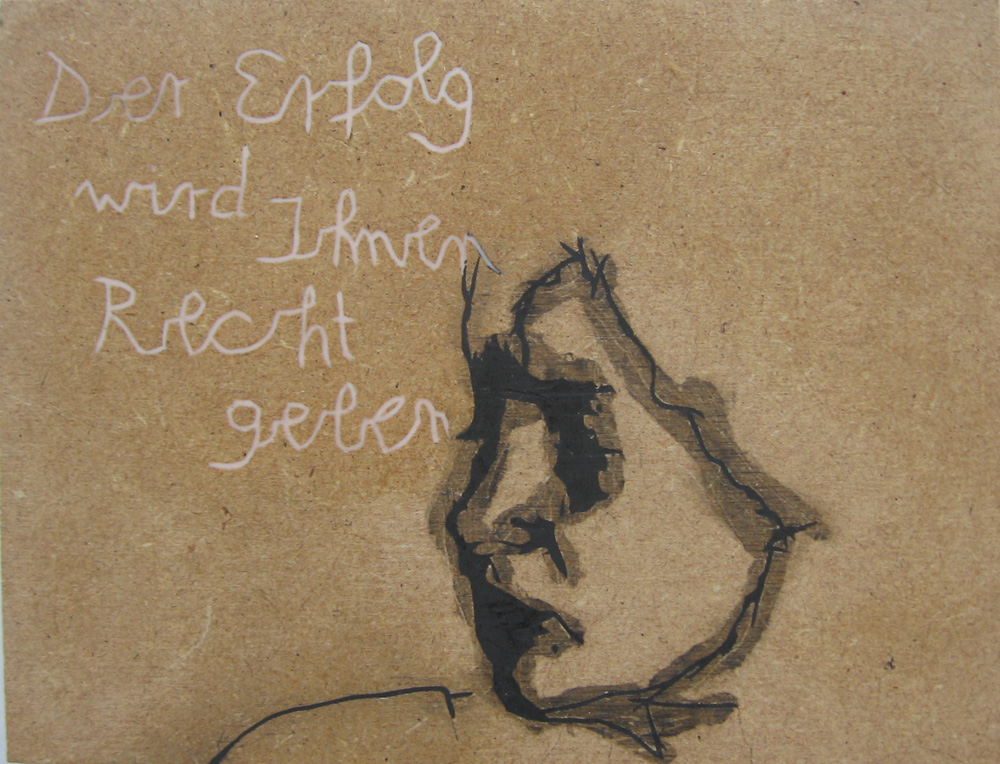 Der Erfolg
wird Ihnen
Recht
geben